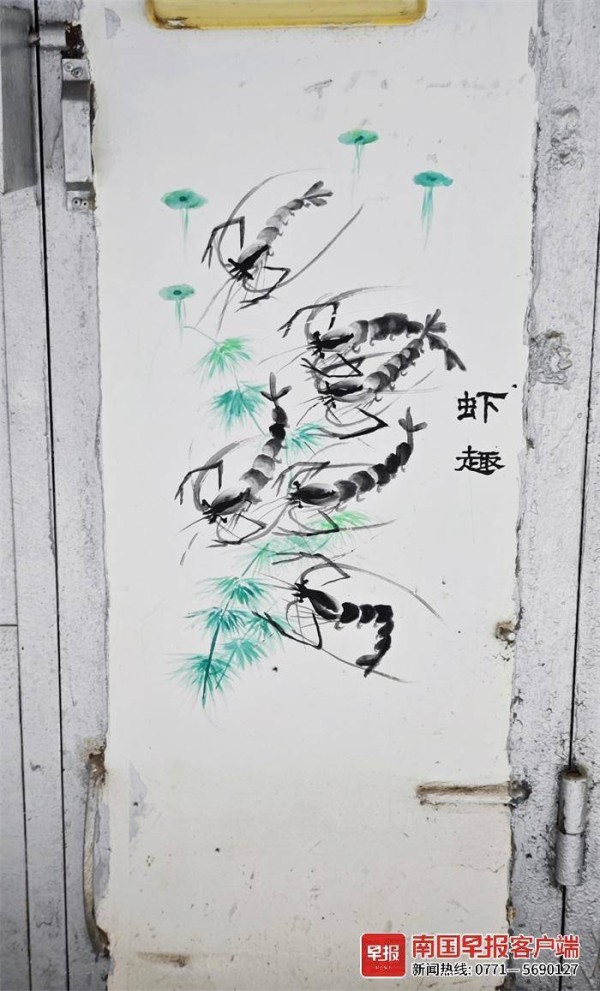 虾
趣
早报
南国早报客户端
新闻热线: 0771—5690127